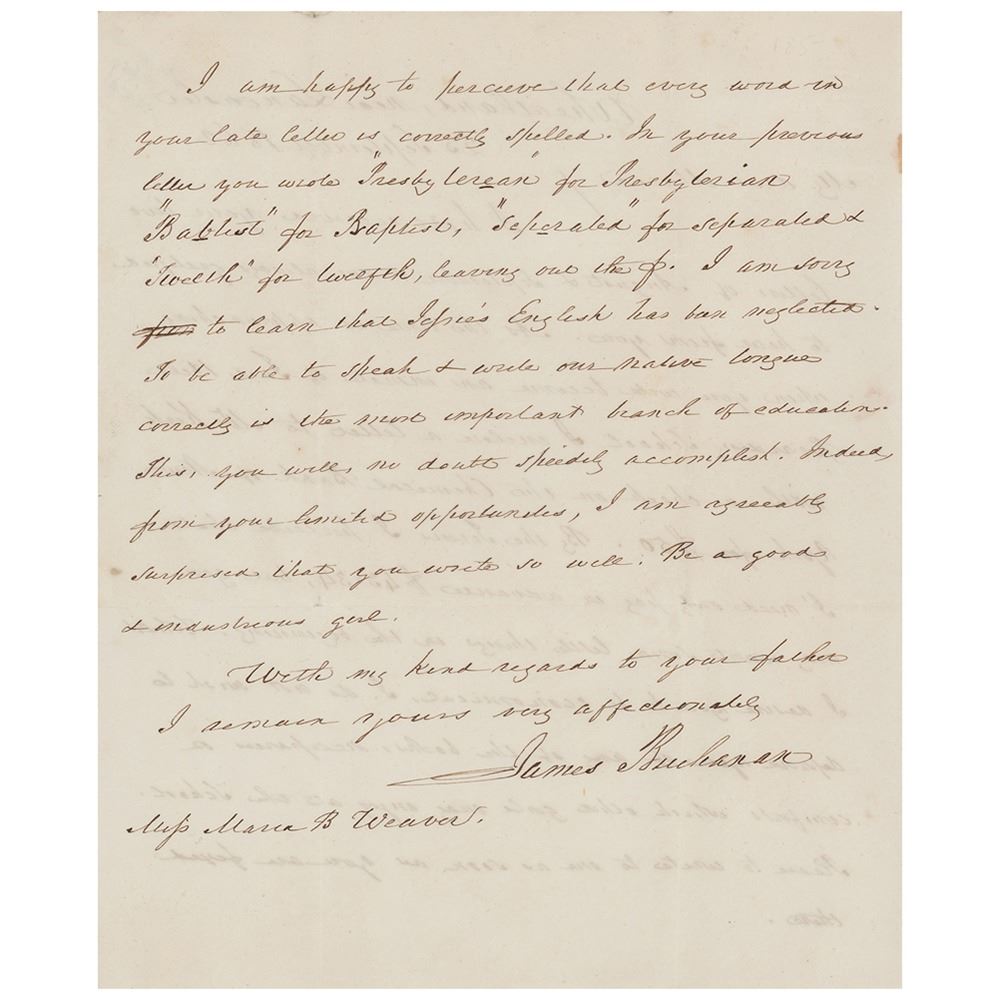 I am happy to percieve that every word in
your late letter is correctly spelled. In your previous
letter you wrote "Presbyterean" for Presbyterian
"Babtist" for Baptist, "seperated" for separated &
"Twelth" for twelfth, leaving out the f. I am sorry
to learn that Jessie's English has been neglected.
To be able to speak & write our native tongue
correctly is the most important branch of education.
This, you will, no doubt speedily accomplish. Indeed,
from your limited opportunities, I am agreeably
surprised that you write so well. Be a good
& industrious girl.
With my kind regards to your father
I remain yours very affectionately
James Buchanan
Miss Maria B Weaver.